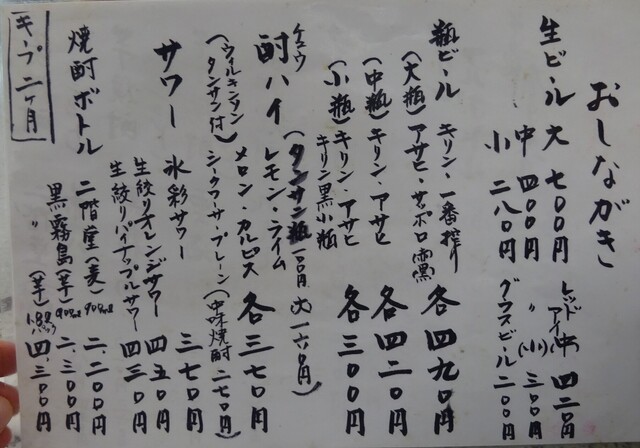 おしながき
生ビール 大 七〇〇円
中 四〇〇円
小 二八〇円
レッドアイ(中) 四二〇円
〃 (小) 三〇〇円
グラスビール 二〇〇円
瓶ビール キリン・一番搾り
(大瓶) アサヒ・サッポロ(黒) 各四九〇円
(中瓶) キリン・アサヒ 各四二〇円
(小瓶) キリン・アサヒ
キリン黒小瓶 各三〇〇円
(タンサン瓶 一〇〇円 大 一六〇円)
チュウ
酎ハイ レモン・ライム
メロン・カルピス 各三七〇円
(ウィルキンソン
タンサン付) シークワーサー・プレーン (中味焼酎 二七〇円)
サワー 氷彩サワー 三七〇円
生絞りオレンジサワー 四五〇円
生絞りパイナップルサワー 四三〇円
焼酎ボトル 二階堂(麦) 900ml 二、二〇〇円
黒霧島(芋) 900ml 二、三〇〇円
〃 (芋) 1.8ℓパック 四、三〇〇円
キープ二ヶ月